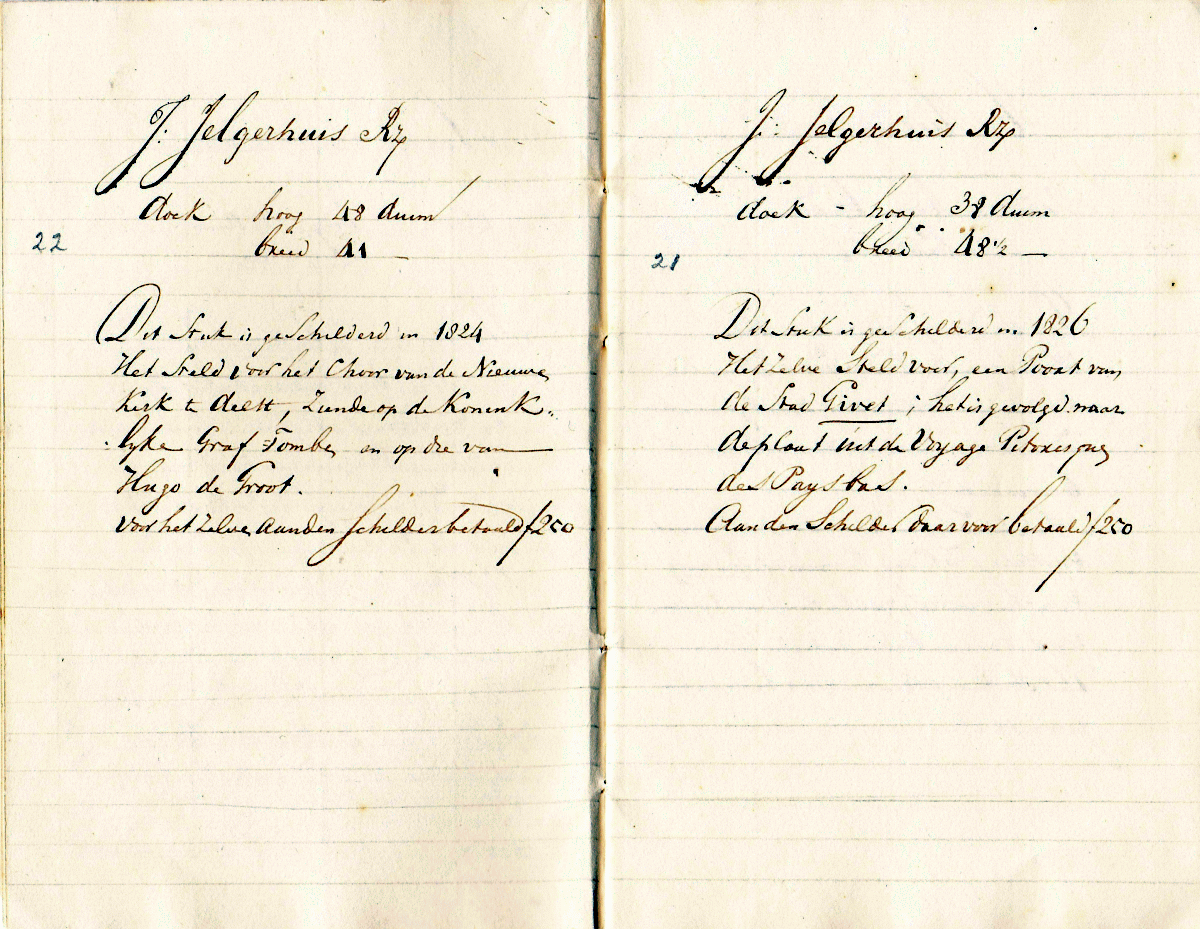 J. Jelgerhuis Rz
doek hoog 48 duim
22
breed 41 —
Dit Stuk is geschilderd in 1824
Het Steld voor het Choor van de Nieuwe
Kerk te delft, Ziende op de Konink„
lyke Graf Tombe, en op die van
Hugo de Groot.
voor het Zelve aan den Schilder betaald f250
J. Jelgerhuis Rz
doek - hoog 38 duim
21
breed 48½ —
Dit Stuk is geschilderd in 1826
Het Zelve Steld voor, een Poort van
de Stad Givet; het is gevolgd naar
de plaat uit de Voyage Pitoresque
des Pays bas.
Aan den Schilder daar voor betaald f250